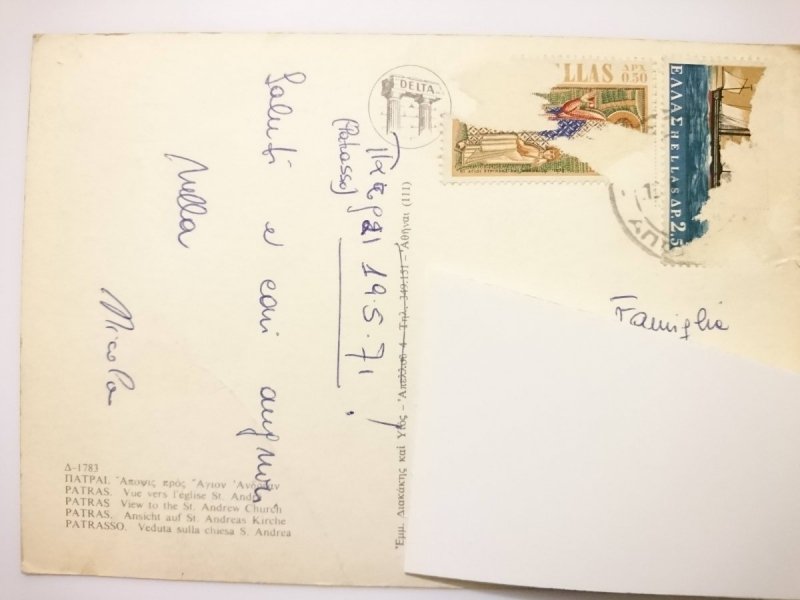 DELTA
ΠΑΤΡΑΙ 19.5.71
(Patrasso)
Saluti e cari auguri
Nella
Nicola
LLAS ΔΡΧ
0.50
ΕΛΛΑΣ HELLAS ΔΡ. 2,5
Famiglia
Ἐμμ. Διακάκης καὶ Υἱός – Ἀπέλλου 4 – Τηλ. 349.151 – Ἀθῆναι (111)
Δ–1783
ΠΑΤΡΑΙ. Ἄποψις πρὸς Ἅγιον Ἀνδρέαν
PATRAS. Vue vers l'église St. André
PATRAS View to the St. Andrew Church
PATRAS. Ansicht auf St. Andreas Kirche
PATRASSO. Veduta sulla chiesa S. Andrea